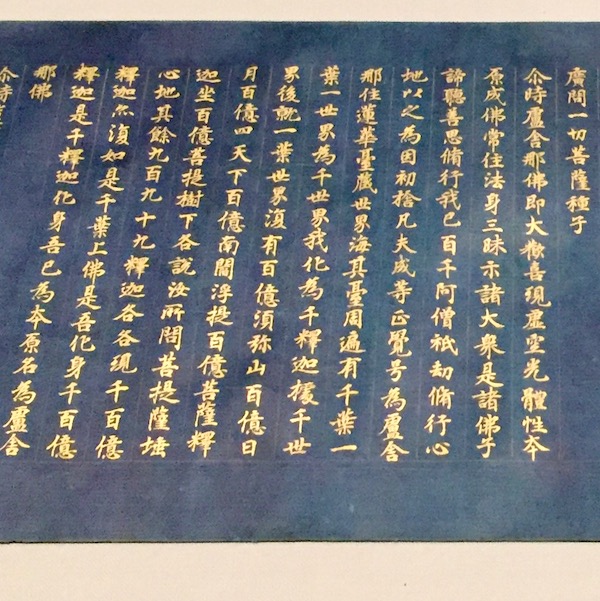 廣問一切菩薩種子
尒時盧舍那佛即大歡喜現虛空光體性夲
原成佛常住法身三昧示諸大衆是諸佛子
諦聽善思脩行我已百千阿僧祇劫脩行心
地以之為因初捨凡夫成等正覺号為盧舍
那住蓮華臺藏世界海其臺周遍有千葉一
葉一世界為千世界我化為千釋迦據千世
界後就一葉世界復有百億須弥山百億日
月百億四天下百億南閻浮提百億菩薩釋
迦坐百億菩提樹下各說汝所問菩提薩埵
心地其餘九百九十九釋迦各各現千百億
釋迦亦復如是千葉上佛是吾化身千百億
釋迦是千釋迦化身吾已為夲原名為盧舍
那佛
尒時